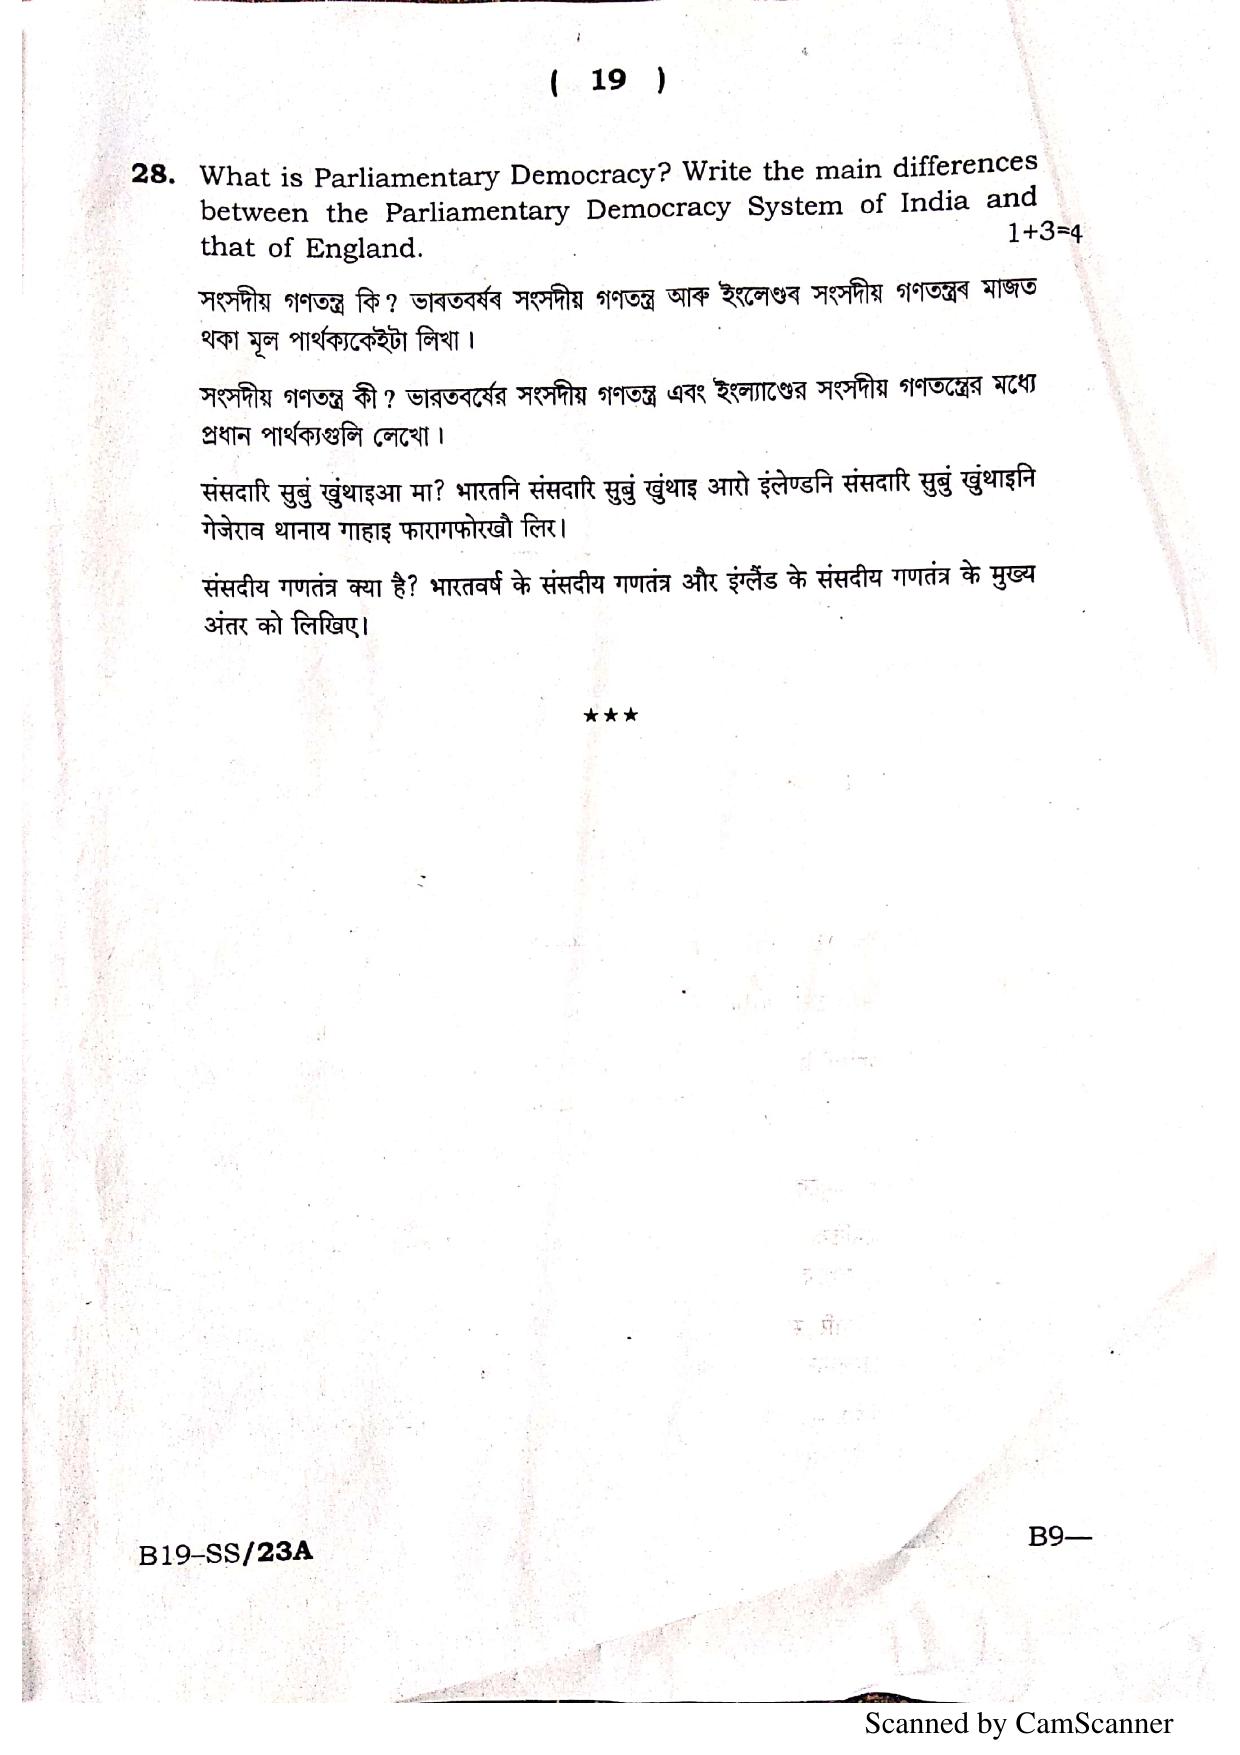 ( 19 )
28. What is Parliamentary Democracy? Write the main differences
between the Parliamentary Democracy System of India and
that of England. 1+3=4
সংসদীয় গণতন্ত্ৰ কি? ভাৰতবৰ্ষৰ সংসদীয় গণতন্ত্ৰ আৰু ইংলেণ্ডৰ সংসদীয় গণতন্ত্ৰৰ মাজত
থকা মূল পাৰ্থক্যকেইটা লিখা।
সংসদীয় গণতন্ত্র কী? ভারতবর্ষের সংসদীয় গণতন্ত্র এবং ইংল্যাণ্ডের সংসদীয় গণতন্ত্রের মধ্যে
প্রধান পার্থক্যগুলি লেখো।
संसदारि सुबुं खुंथाइआ मा? भारतनि संसदारि सुबुं खुंथाइ आरो इंलेण्डनि संसदारि सुबुं खुंथाइनि
गेजेराव थानाय गाहाइ फारागफोरखौ लिर।
संसदीय गणतंत्र क्या है? भारतवर्ष के संसदीय गणतंत्र और इंग्लैंड के संसदीय गणतंत्र के मुख्य
अंतर को लिखिए।
★★★
B19–SS/23A B9—
Scanned by CamScanner